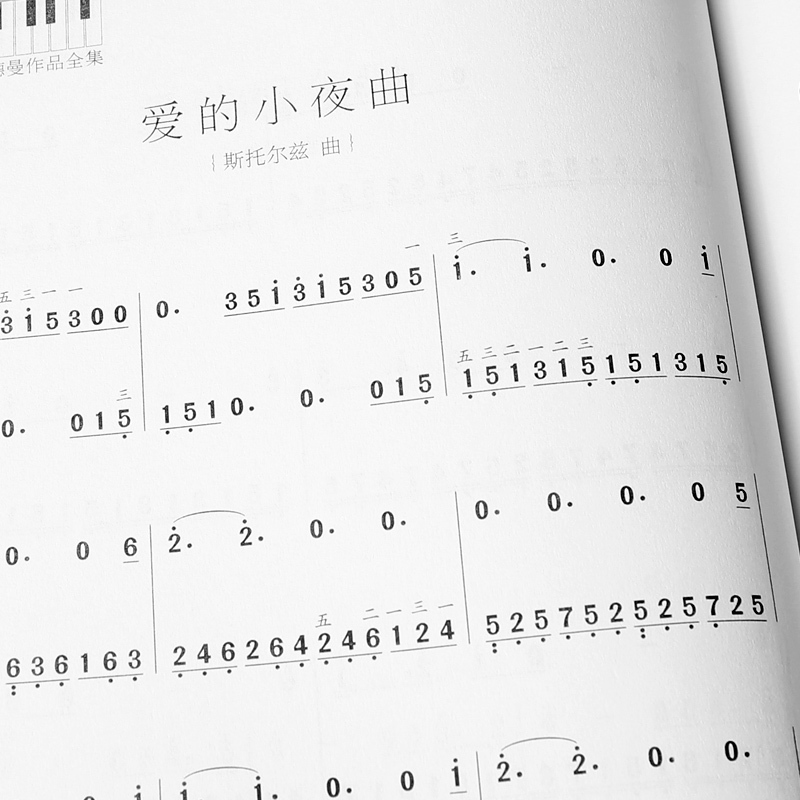 德曼作品全集
爱的小夜曲
{斯托尔兹 曲}
五三一一 一 三
3 i 5 3 0 0 0· 3 5 i 3 i 5 3 0 5 i· i· 0· 0 i
三 五三二一二三
0· 0 1 5 1 5 1 0· 0· 0 1 5 1 5 1 3 1 5 1 5 1 3 1 5
0· 0 6 2· 2· 0· 0· 0· 0· 0· 0 5
五 二一三一
6 3 6 1 6 3 2 4 6 2 6 4 2 4 6 1 2 4 5 2 5 7 5 2 5 2 5 7 2 5
0 i i· i· 0· 0 i 2· 2· 0· 0·